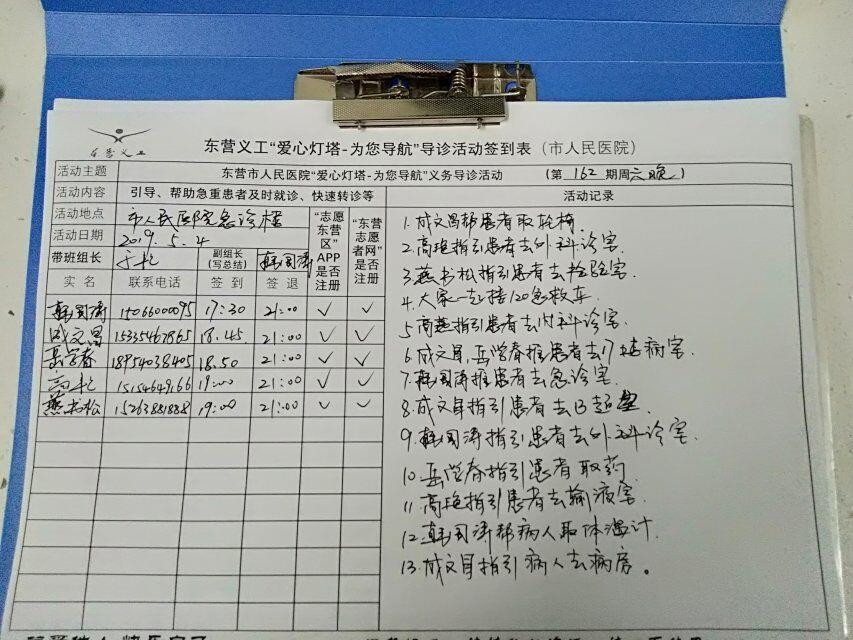 东营义工
东营义工“爱心灯塔-为您导航”导诊活动签到表（市人民医院）
活动主题 东营市人民医院“爱心灯塔-为您导航”义务导诊活动 （第 162 期周六晚）
活动内容 引导、帮助急重患者及时就诊、快速转诊等 活动记录
活动地点 市人民医院急诊楼
活动日期 2019.5.4
带班组长 副组长（写总结） 韩国涛
“志愿东营区”APP是否注册 “东营志愿者网”是否注册
实名 联系电话 签到 签退
韩国涛 15066000095 17:30 21:00 ✓ ✓
成文昌 15335467865 18.45 21:00 ✓ ✓
岳学春 18954038405 18.50 21:00 ✓ ✓
高艳 15154649166 19:00 21:00 ✓ ✓
燕书松 15263881888 19:00 21:00 ✓ ✓
1.成文昌帮患者取轮椅.
2.高艳指引患者去外科诊室.
3.燕书松指引患者去检验室.
4.大家一起接120急救车.
5.高燕指引患者去内科诊室.
6.成文昌,岳学春推患者去病室.
7.韩国涛推患者去急诊室.
8.成文昌指引患者去B超室.
9.韩国涛指引患者去外科诊室.
10.岳学春指引患者取药.
11.高艳指引患者去输液室.
12.韩国涛帮病人取体温计.
13.成文昌指引病人去病房。